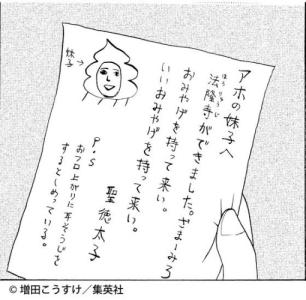 アホの妹子へ
法隆寺ができました。ざまーみろ
おみやげを持って来い。
いいおみやげを持って来い。
聖徳太子
P.S
おフロ上がりに耳そうじを
するとしめっている。
妹子
ほうりゅうじ
© 増田こうすけ/集英社